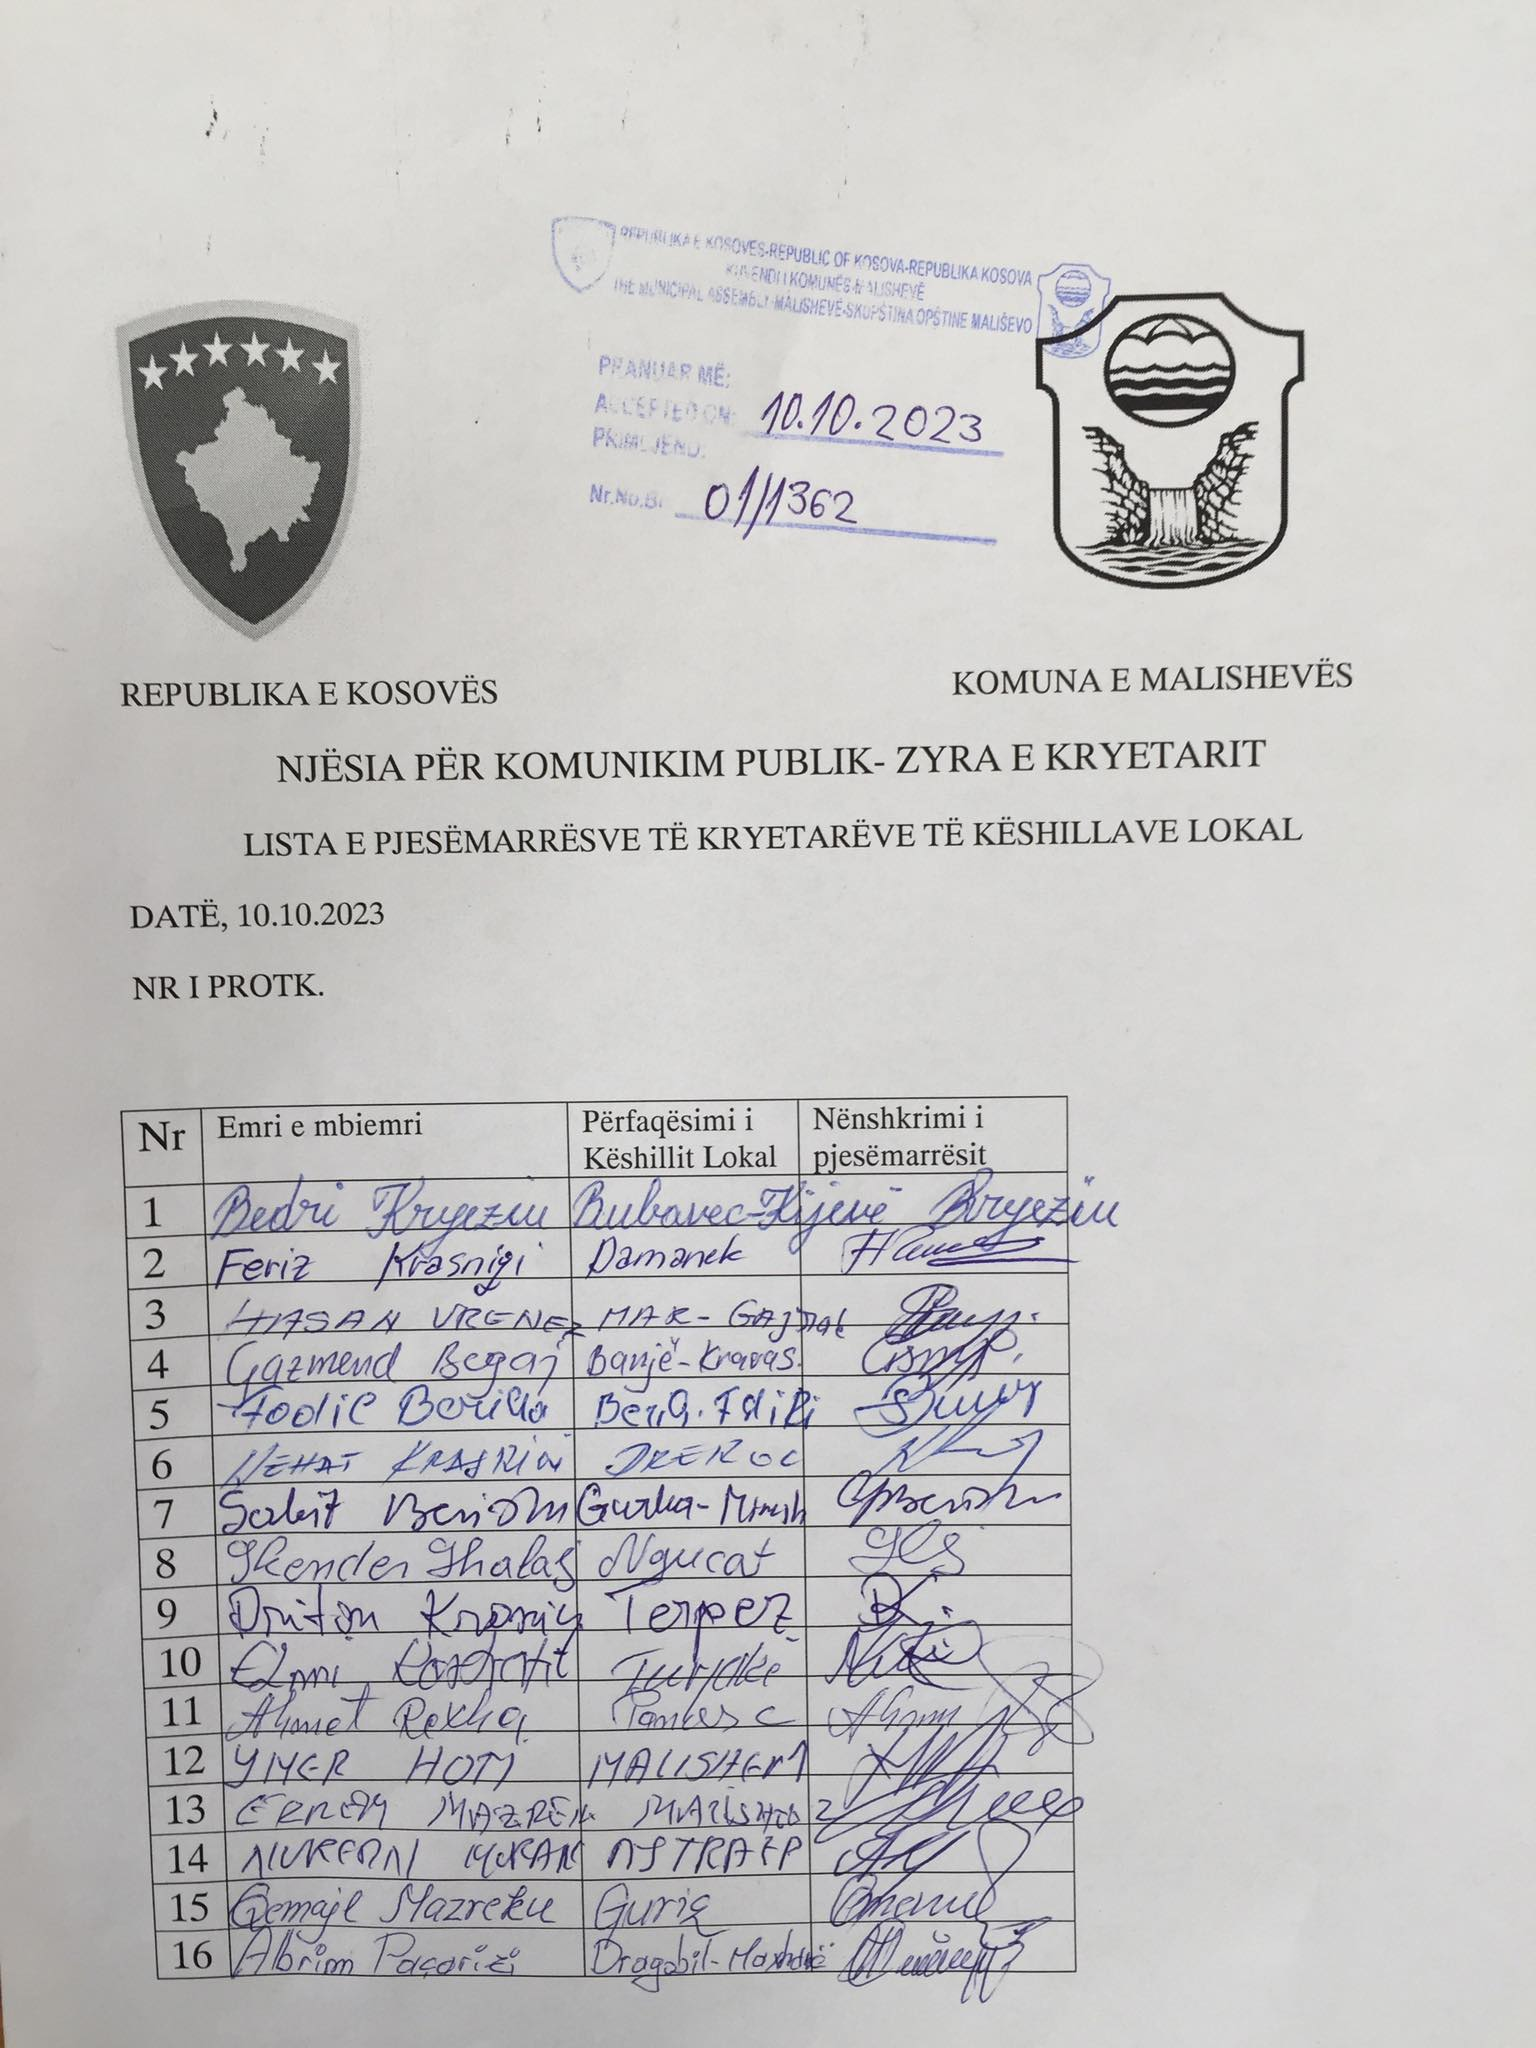 REPUBLIKA E KOSOVËS-REPUBLIC OF KOSOVA-REPUBLIKA KOSOVA
KUVENDI I KOMUNËS-MALISHEVË
THE MUNICIPAL ASSEMBLY-MALISHEVË-SKUPŠTINA OPŠTINE MALIŠEVO
PRANUAR MË:
ACCEPTED ON: 10.10.2023
PRIMLJENO:
Nr.No.Br. 01/1362
REPUBLIKA E KOSOVËS KOMUNA E MALISHEVËS
NJËSIA PËR KOMUNIKIM PUBLIK- ZYRA E KRYETARIT
LISTA E PJESËMARRËSVE TË KRYETARËVE TË KËSHILLAVE LOKAL
DATË, 10.10.2023
NR I PROTK.
Nr Emri e mbiemri Përfaqësimi i Këshillit Lokal Nënshkrimi i pjesëmarrësit
1 Bedri Kryeziu Bubavec-Kijevë Kryeziu
2 Feriz Krasniqi Damanek
3 HASAN VRENEZ MAR-
4 Gazmend Begaj Banjë-Kravas.
5 Berisha
6 NEHAT KRASNIQI DRENOC
7 Sabit Berisha Gurka-
8 Skender Shalaj Ngucat
9 Driton Terpez
10
11 Ahmet Rexhaj
12 YMER HOTI MALISHEVË
13 MAZREK
14
15 Qemajl Mazreku Guriq
16 Albrim Paçarizi Dragobil-